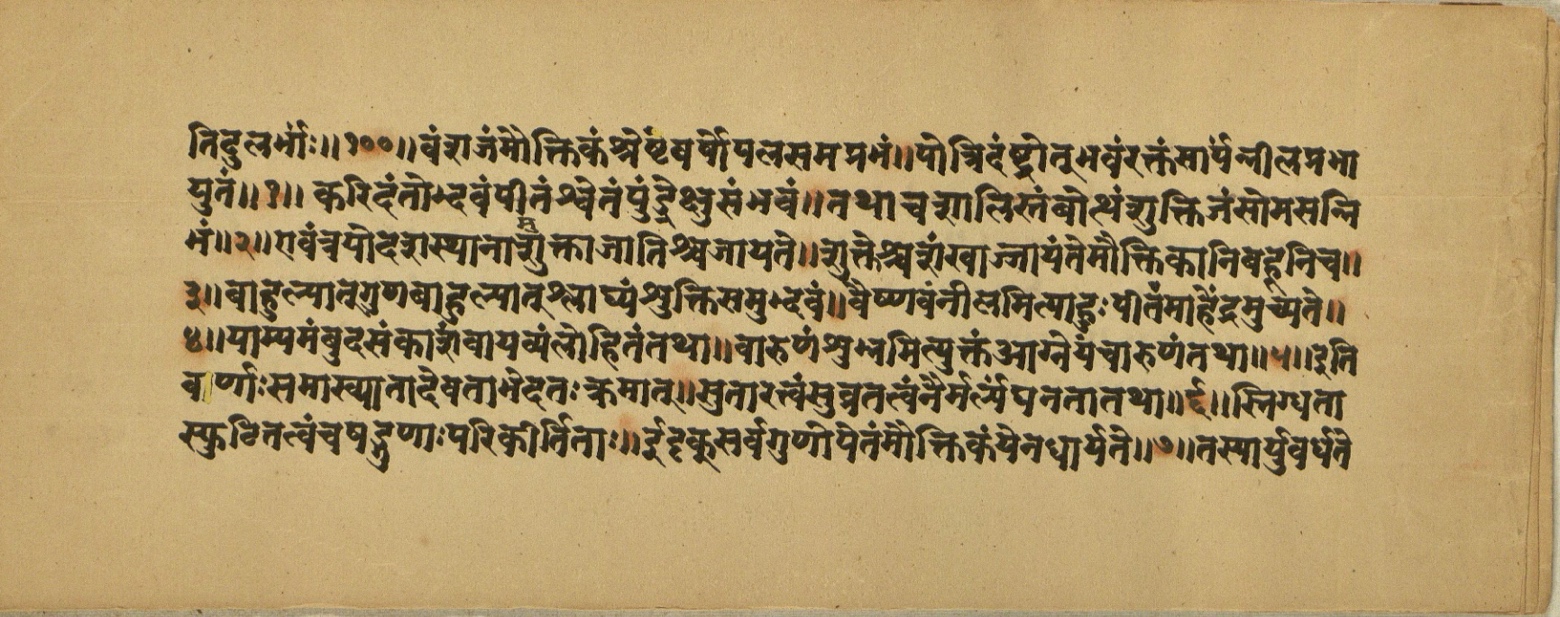 तिदुलर्भाः॥१००॥वंशजंमौक्तिकंश्रेष्टंवर्षोपलसमप्रभं॥पोत्रिदंष्ट्रोत्भवंरक्तंसार्पंनीलप्रभा
युतं॥१॥करिदंतोद्भवंपीतंश्वेतंपुंड्रेक्षुसंभवं॥तथाचशालिस्तंबोत्थंशुक्तिजंसोमसन्नि
भं॥२॥एवंत्रयोदशस्थानाशुक्ताजातिश्चजायते॥शुक्तेश्चशंखाज्जायंतेमौक्तिकानिबहूनिच॥
३॥बाहुल्यात्गुणबाहुल्यात्श्लाघ्यंश्रुक्तिसमुद्भवं॥वैष्णवंनीलमित्याहुःपीतंमाहेंद्रमुच्यते॥
४॥याम्यमंबुदसंकाशंवायव्यंलोहितंतथा॥वारुणंशुभ्रमित्युक्तंआग्नेयंचारुणंतथा॥५॥इति
वर्णाःसमाख्यातादेवताभेदतःक्रमात्॥सुतारत्वंसुवृतत्वंनैर्मल्यंघनतातथा॥६॥स्निग्धता
स्फुरितत्वंचषड्गुणाःपरिकीर्तिताः॥ईदृक्सर्वगुणोपेतंमौक्तिकंयेनधार्यते॥७॥तस्यार्युवर्धते